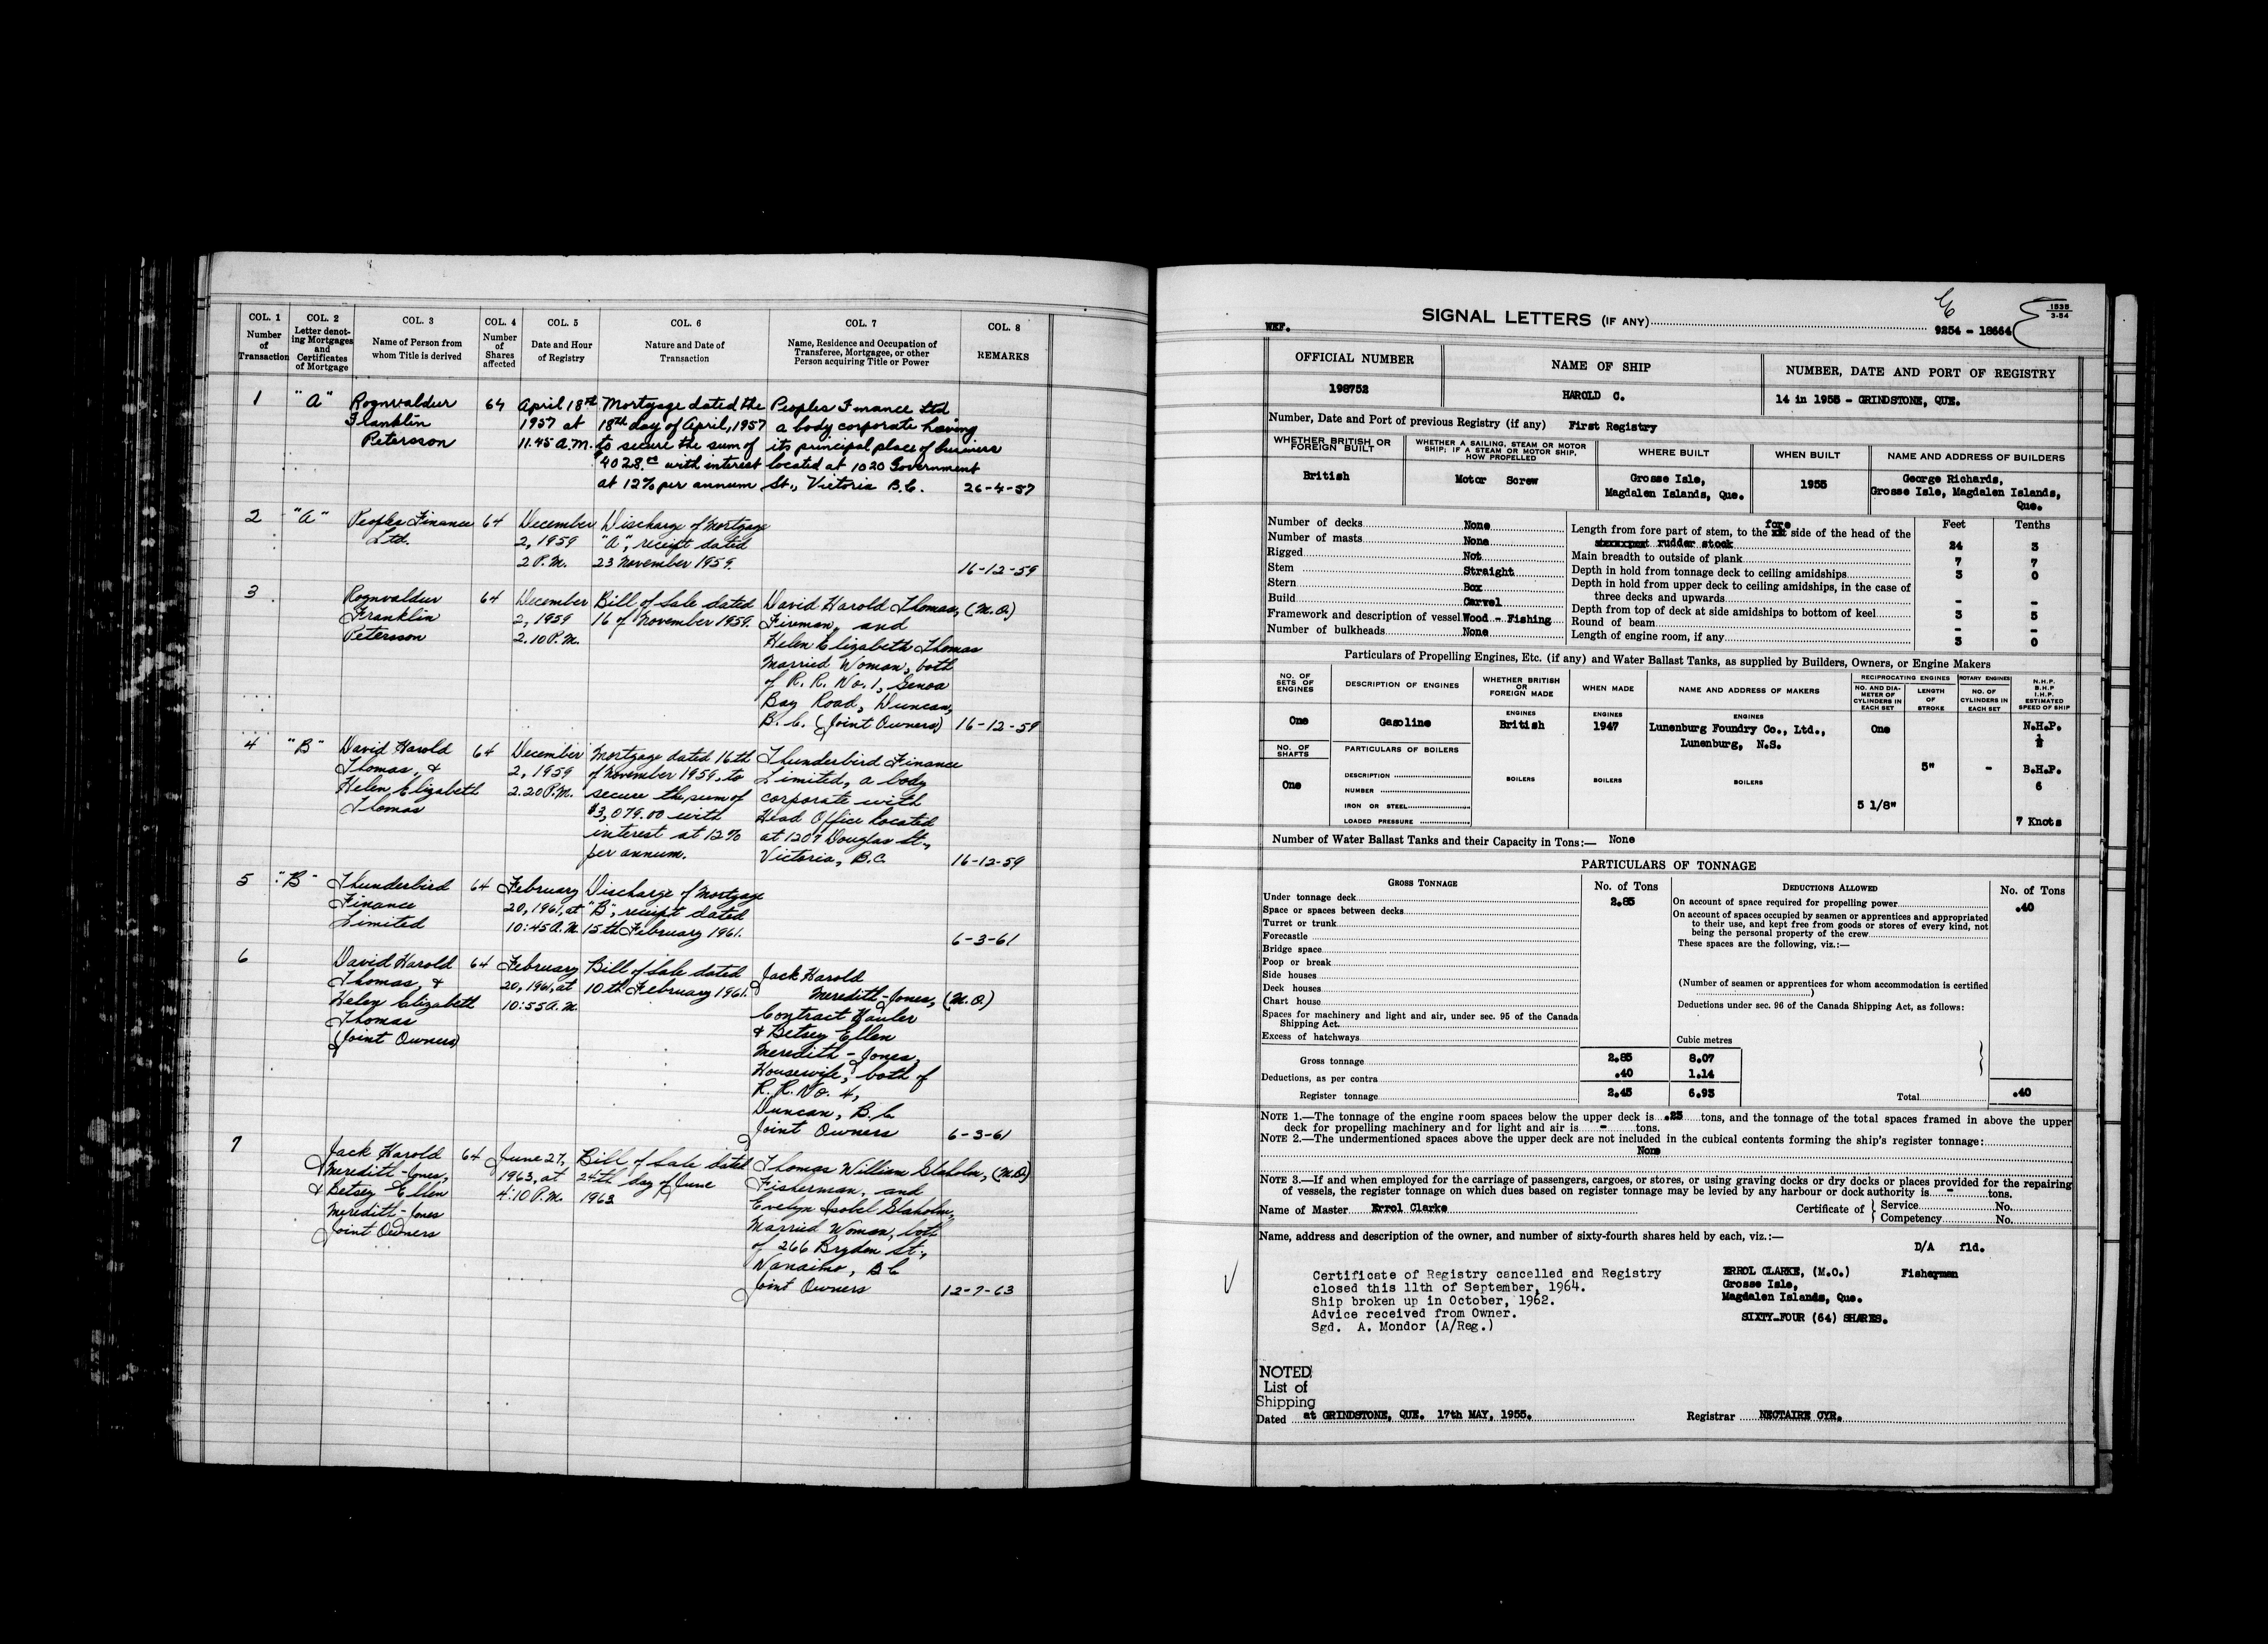 COL. 1 COL. 2 COL. 3 COL. 4 COL. 5 COL. 6 COL. 7 COL. 8
Number of Transaction
Letter denoting Mortgages and Certificates of Mortgage
Name of Person from whom Title is derived
Number of Shares affected
Date and Hour of Registry
Nature and Date of Transaction
Name, Residence and Occupation of Transferee, Mortgagee, or other Person acquiring Title or Power
REMARKS
1 "A" Rognvaldur 64 April 18th Mortgage dated the Peoples Finance Ltd
Franklin 1957 at 18th day of April, 1957 a body corporate having
Petersson 11.45 A.M. to secure the sum of its principal place of business
$4028.00 with interest located at 1020 Government
at 12% per annum St., Victoria B.C. 26-4-57
2 "A" Peoples Finance 64 December Discharge of Mortgage
Ltd. 2, 1959 "A", receipt dated
2 P.M. 23 November 1959. 16-12-59
3 Rognvaldur 64 December Bill of Sale dated David Harold Thomas, (M.O.)
Franklin 2, 1959 16 of November 1959. Fireman, and
Petersson 2.10 P.M. Helen Elizabeth Thomas
Married Woman, both
of R. R. No. 1, Genoa
Bay Road, Duncan,
B.C. (Joint Owners) 16-12-59
4 "B" David Harold 64 December Mortgage dated 16th Thunderbird Finance
Thomas, & 2, 1959 of November 1959, to Limited, a body
Helen Elizabeth 2.20 P.M. secure the sum of corporate with
Thomas $3,079.00 with Head Office located
interest at 12% at 1207 Douglas St.,
per annum. Victoria, B.C. 16-12-59
5 "B" Thunderbird 64 February Discharge of Mortgage
Finance 20, 1961, at "B", receipt dated
Limited 10:45 A.M. 15th February 1961. 6-3-61
6 David Harold 64 February Bill of Sale dated Jack Harold
Thomas, & 20, 1961, at 10th February 1961. Meredith-Jones, (M.O.)
Helen Elizabeth 10:55 A.M. Contract Hauler
Thomas & Betsey Ellen
(Joint Owners) Meredith-Jones,
Housewife, both of
R. R. No. 4,
Duncan, B.C.
Joint Owners 6-3-61
7 Jack Harold 64 June 27, Bill of Sale dated Thomas William Glaholm, (M.O.)
Meredith-Jones, 1963, at 24th day of June Fisherman, and
& Betsey Ellen 4:10 P.M. 1963 Evelyn Isobel Glaholm,
Meredith-Jones Married Woman, both
Joint Owners of 266 Bryden St.,
Nanaimo, B.C.
Joint Owners 12-7-63
1535
3-54
SIGNAL LETTERS (IF ANY)
WKF. 9254 - 18664
OFFICIAL NUMBER NAME OF SHIP NUMBER, DATE AND PORT OF REGISTRY
198752 HAROLD C. 14 in 1955 - GRINDSTONE, QUE.
Number, Date and Port of previous Registry (if any) First Registry
WHETHER BRITISH OR FOREIGN BUILT
WHETHER A SAILING, STEAM OR MOTOR SHIP; IF A STEAM OR MOTOR SHIP, HOW PROPELLED
WHERE BUILT WHEN BUILT NAME AND ADDRESS OF BUILDERS
British Motor Screw Grosse Isle, Magdalen Islands, Que. 1955 George Richards, Grosse Isle, Magdalen Islands, Que.
Number of decks None
Number of masts None
Rigged Not
Stem Straight
Stern Box
Build Carvel
Framework and description of vessel Wood - Fishing
Number of bulkheads None
Feet Tenths
Length from fore part of stem, to the fore side of the head of the rudder stock 24 3
Main breadth to outside of plank 7 7
Depth in hold from tonnage deck to ceiling amidships 3 0
Depth in hold from upper deck to ceiling amidships, in the case of three decks and upwards - -
Depth from top of deck at side amidships to bottom of keel 3 5
Round of beam - -
Length of engine room, if any 3 0
Particulars of Propelling Engines, Etc. (if any) and Water Ballast Tanks, as supplied by Builders, Owners, or Engine Makers
NO. OF SETS OF ENGINES
DESCRIPTION OF ENGINES
WHETHER BRITISH OR FOREIGN MADE
WHEN MADE
NAME AND ADDRESS OF MAKERS
RECIPROCATING ENGINES ROTARY ENGINES
NO. AND DIAMETER OF CYLINDERS IN EACH SET
LENGTH OF STROKE
NO. OF CYLINDERS IN EACH SET
N.H.P. B.H.P. I.H.P. ESTIMATED SPEED OF SHIP
ENGINES ENGINES ENGINES
One Gasoline British 1947 Lunenburg Foundry Co., Ltd., One N.H.P.
Lunenburg, N.S.
NO. OF SHAFTS PARTICULARS OF BOILERS
One
DESCRIPTION BOILERS BOILERS BOILERS 5" - B.H.P.
NUMBER 6
IRON OR STEEL 5 1/8"
LOADED PRESSURE 7 Knots
Number of Water Ballast Tanks and their Capacity in Tons:— None
PARTICULARS OF TONNAGE
GROSS TONNAGE No. of Tons DEDUCTIONS ALLOWED No. of Tons
Under tonnage deck 2.85
Space or spaces between decks
Turret or trunk
Forecastle
Bridge space
Poop or break
Side houses
Deck houses
Chart house
Spaces for machinery and light and air, under sec. 95 of the Canada Shipping Act
Excess of hatchways
On account of space required for propelling power .40
On account of spaces occupied by seamen or apprentices and appropriated
to their use, and kept free from goods or stores of every kind, not
being the personal property of the crew
These spaces are the following, viz.:—
(Number of seamen or apprentices for whom accommodation is certified )
Deductions under sec. 96 of the Canada Shipping Act, as follows:
Cubic metres
Gross tonnage 2.85 8.07
Deductions, as per contra .40 1.14
Register tonnage 2.45 6.93 Total .40
NOTE 1.—The tonnage of the engine room spaces below the upper deck is .25 tons, and the tonnage of the total spaces framed in above the upper
deck for propelling machinery and for light and air is - tons.
NOTE 2.—The undermentioned spaces above the upper deck are not included in the cubical contents forming the ship's register tonnage:
None
NOTE 3.—If and when employed for the carriage of passengers, cargoes, or stores, or using graving docks or dry docks or places provided for the repairing
of vessels, the register tonnage on which dues based on register tonnage may be levied by any harbour or dock authority is - tons.
Name of Master Errol Clarke Certificate of Service No.
Competency No.
Name, address and description of the owner, and number of sixty-fourth shares held by each, viz.:—
D/A fld.
Certificate of Registry cancelled and Registry
closed this 11th of September, 1964.
Ship broken up in October, 1962.
Advice received from Owner.
Sgd. A. Mondor (A/Reg.)
ERROL CLARKE, (M.O.) Fisherman
Grosse Isle,
Magdalen Islands, Que.
SIXTY-FOUR (64) SHARES.
NOTED
List of
Shipping
Dated at GRINDSTONE, QUE. 17th MAY, 1955. Registrar NECTAIRE CYR.